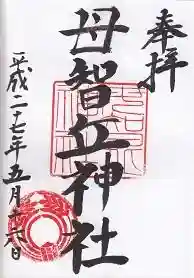 奉拝
母智丘神社
平成二十七年五月十六日